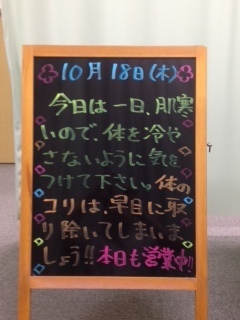 10月18日(木)
今日は一日、肌寒
いので、体を冷や
さないように気を
つけて下さい。体の
コリは、早目に取
り除いてしまいま
しょう!!本日も営業中!!